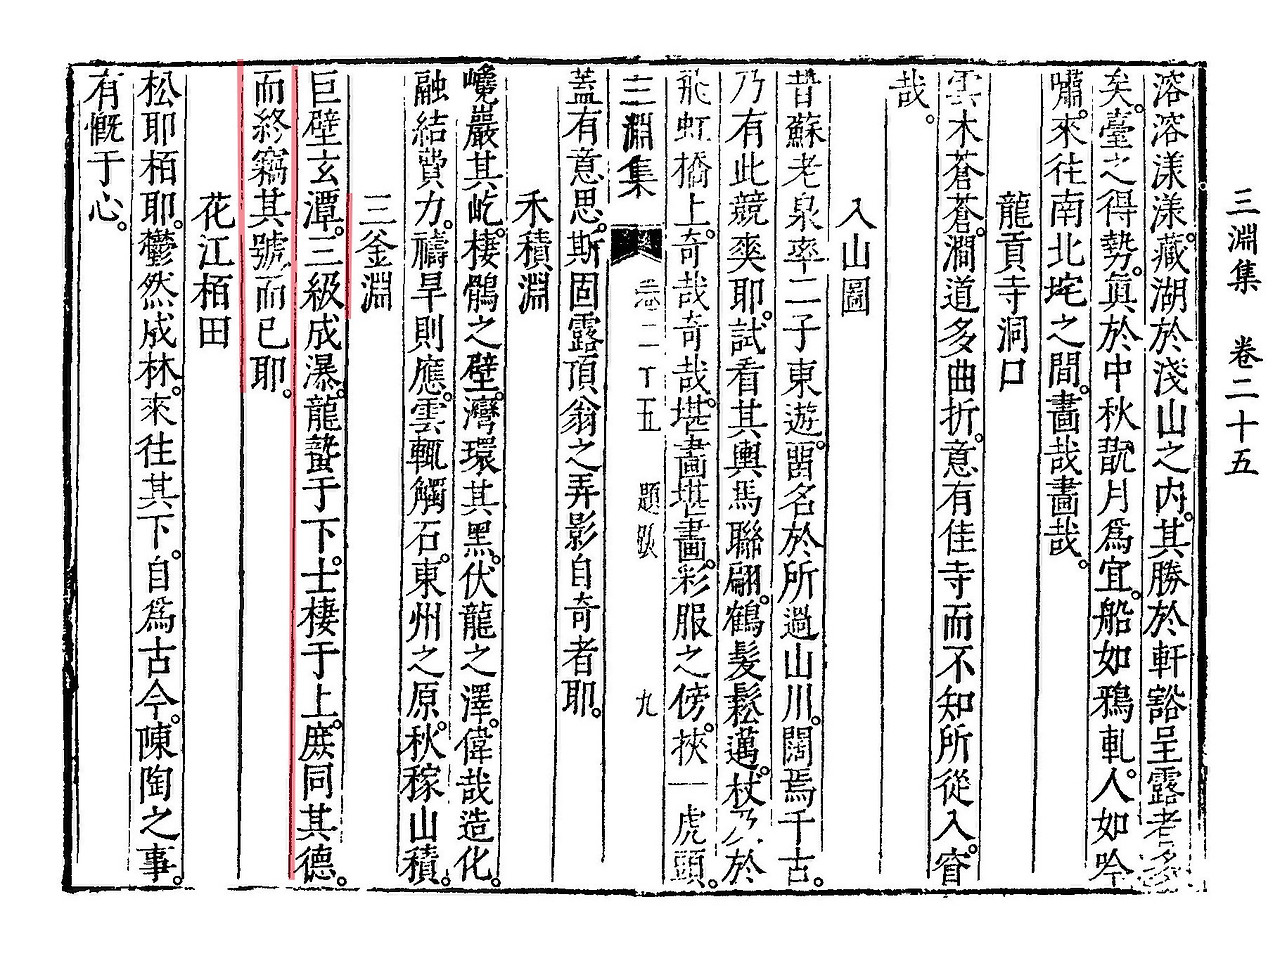 三淵集 卷二十五
溶溶漾漾。藏湖於淺山之内。其勝於軒豁呈露者多
矣。臺之得勢。眞於中秋翫月爲宜。船如鴉軋。人如吟
嘯。來往南北垞之間。畵哉畵哉。
龍貢寺洞口
雲木蒼蒼。澗道多曲折。意有佳寺而不知所從入。窅
哉。
入山圖
昔蘇老泉率二子東遊。留名於所過山川。闊焉千古。
乃有此競爽耶。試看其輿馬聯翩。鶴髮鬆邁。杖乃於
飛虹橋上。奇哉奇哉。堪畵堪畵。彩服之傍。挾一虎頭。
三淵集 卷二十五 題跋 九
蓋有意思。斯固露頂翁之弄影自奇者耶。
禾積淵
巉巖其屹。棲鶻之壁。灣環其黑。伏龍之澤。偉哉造化。
融結費力。禱旱則應。雲輒觸石。東州之原。秋稼山積。
三釜淵
巨壁玄潭。三級成瀑。龍蟄于下。士棲于上。庶同其德。
而終竊其號而已耶。
花江栢田
松耶栢耶。鬱然成林。來往其下。自爲古今。陳陶之事。
有慨于心。